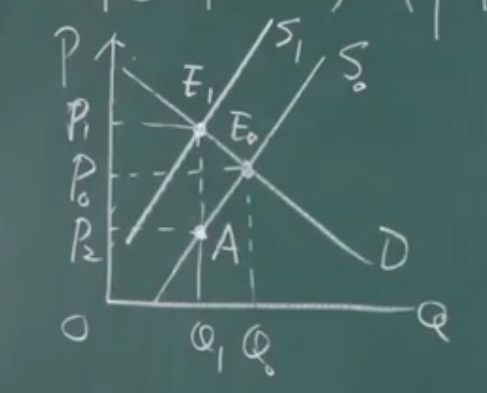 P
S₁
S₀
E₁
P₁
E₀
P₀
P₂
A
D
O
Q₁ Q₀
Q